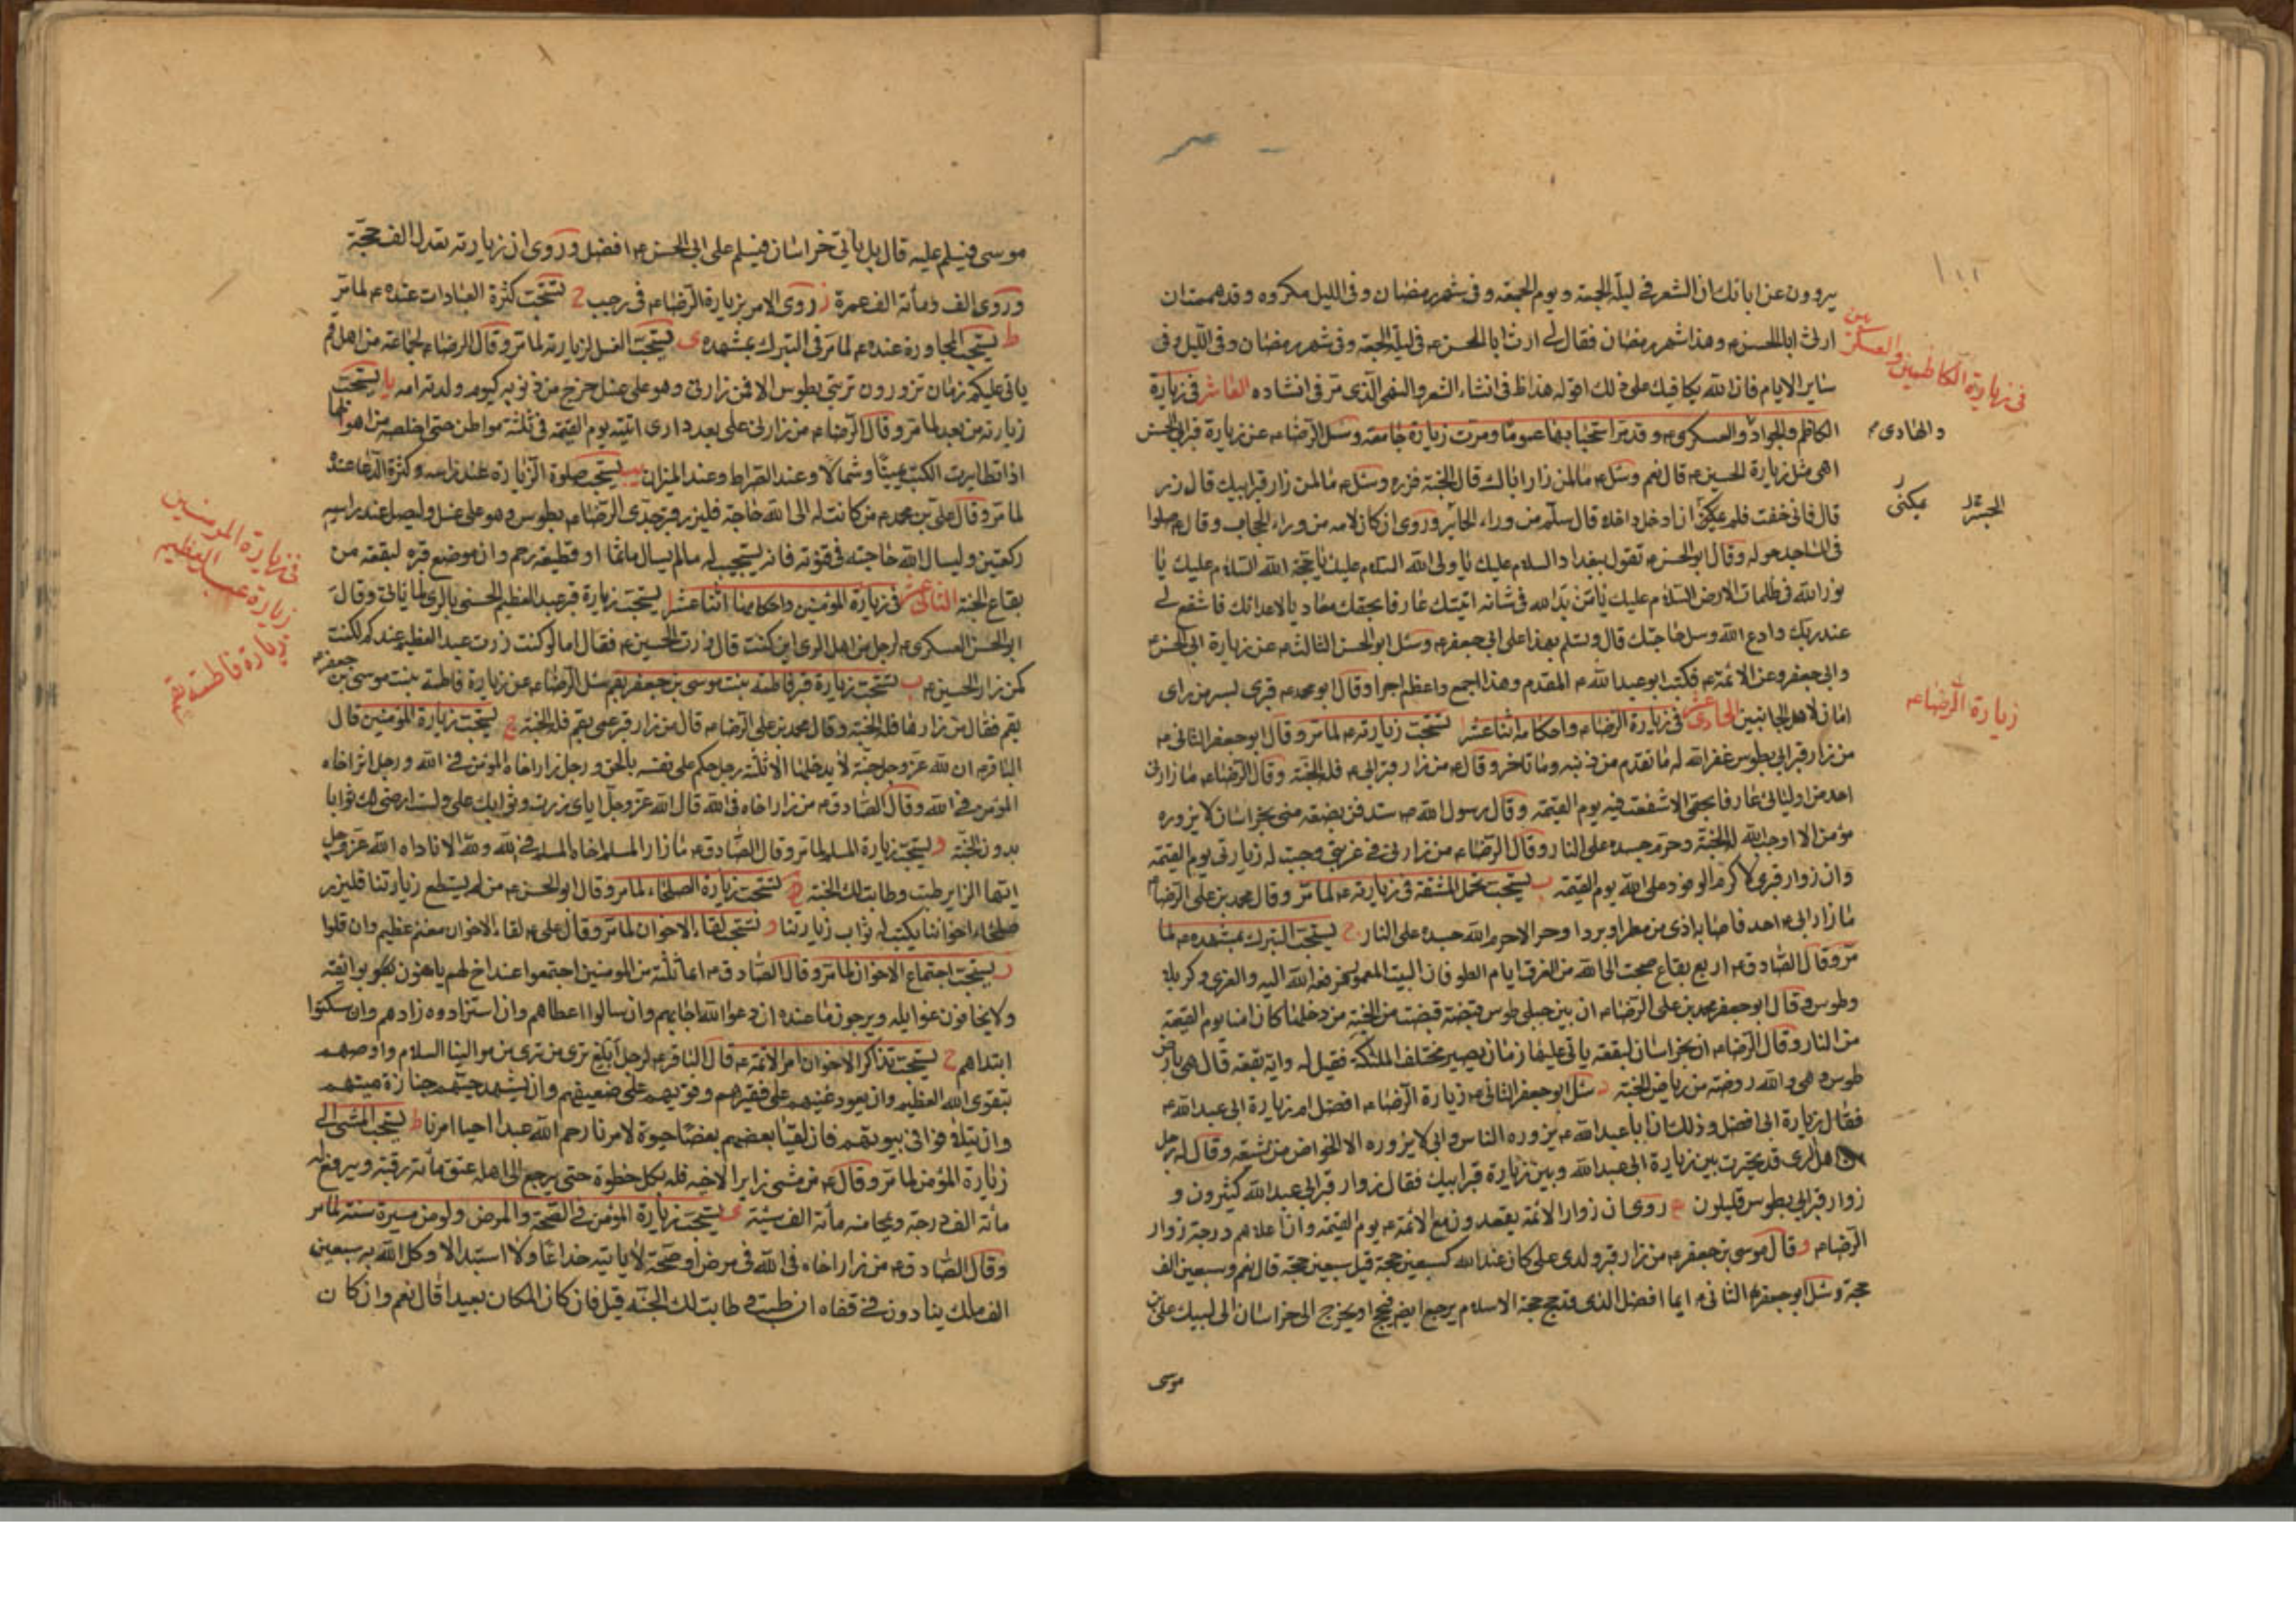 يروون عن ابائك ان الشعر في ليلة الجمعة ويوم الجمعة وفي شهر رمضان وفي الليل مكروه وقد هممت ان
ارثي ابا الحسن م وهذا شهر رمضان فقال لي ارث ابا الحسن م في ليلة الجمعة وفي شهر رمضان وفي الليل وفي
ساير الايام فان الله يكافيك على ذلك اقول هذا في انشاء الشعر والنهي الذي مر في انشاده العاشر في زيارة
في زيارة الكاظمين والعسكريين
الكاظم والجواد والعسكري م وقد مر استحبابها عموما ومرت زيارة جامعة وسئل الرضا م عن زيارة قبر ابي الحسن
والهادي م
اهي مثل زيارة الحسين م قال نعم وسئل م ما لمن زار اباك قال الجنة فزره وسئل م ما لمن زار قبر ابيك قال زر
قال فاني خفت فلم يمكني ان ادخل داخله قال سلم من وراء الحائر وروي ان كان لا مه من وراء الحجاب وقال م صلوا
يمكني
الجسر
في المساجد حوله وقال ابو الحسن م تقول ببغداد السلام عليك يا ولي الله السلام عليك يا حجة الله السلام عليك يا
نور الله في ظلمات الارض السلام عليك يا من بدا لله في شانه اتيتك عارفا بحقك معاديا لاعدائك فاشفع لي
عند ربك وادع الله وسل حاجتك قال وتسلم بهذا على ابي جعفر م وسئل ابو الحسن الثالث م عن زيارة ابي الحسن م
وابي جعفر وعن الائمة م فكتب ابو عبد الله م المقدم وهذا اجمع واعظم اجرا وقال ابو محمد م قبري بسر من راى
امان لاهل الجانبين الحادي عشر في زيارة الرضا م واحكامها اثنا عشر ا تستحب زيارته م لما مر وقال ابو جعفر الثاني م
زيارة الرضا م
من زار قبر ابي بطوس غفر الله له ما تقدم من ذنبه وما تاخر وقال م من زار قبر ابي م فله الجنة وقال الرضا م ما زارني
احد من اوليائي عارفا بحقي الا شفعت فيه يوم القيمة وقال رسول الله ص ستدفن بضعة مني بخراسان لا يزوره
مؤمن الا اوجب الله له الجنة وحرم جسده على النار وقال الرضا م من زارني في غربتي وجبت له زيارتي يوم القيمة
وان زوار قبري لاكرم الوفود على الله يوم القيمة ب يستحب تحمل المشقة في زيارته م لما مر وقال محمد بن علي الرضا م
ما زار ابي م احد فاصابه اذى من مطر او برد او حر الا حرم الله جسده على النار ج يستحب التبرك بمشهده م لما
مر وقال الصادق م اربع بقاع ضجت الى الله من الغرق ايام الطوفان البيت المعمور فرفعه الله اليه والغري وكربلا
وطوس وقال ابو جعفر محمد بن علي الرضا م ان بين جبلي طوس قبضة قبضت من الجنة من دخلها كان امنا يوم القيمة
من النار وقال الرضا م ان بخراسان لبقعة ياتي عليها زمان يصير مختلف الملئكة فقيل له واية بقعة قال هي بارض
طوس وهي والله روضة من رياض الجنة د سئل ابو جعفر الثاني م زيارة الرضا م افضل ام زيارة ابي عبد الله م
فقال زيارة ابي افضل وذلك ان ابا عبد الله م يزوره الناس وابي لا يزوره الا الخواص من الشيعة وقال له رجل
من اهل الري قد تحيرت بين زيارة ابي عبد الله وبين زيارة قبر ابيك فقال زوار قبر ابي عبد الله كثيرون و
زوار قبر ابي بطوس قليلون ه روي ان زوار الائمة يقعدون مع الائمة م يوم القيمة وان اعلاهم درجة زوار
الرضا م و قال موسى بن جعفر م من زار قبر ولدي علي كان عند الله كسبعين حجة قيل سبعين حجة قال نعم وسبعين الف
حجة وسئل ابو جعفر الثاني م ايما افضل الذي قد حج حجة الاسلام يرجع ايضا فيحج او يخرج الى خراسان الى ابيك علي بن
موسى
موسى فيسلم عليه قال بل ياتي خراسان فيسلم على ابي الحسن م افضل وروي ان زيارته تعدل الف حجة
وروي الف ومأة الف عمرة ز روي الامر بزيارة الرضا م في رجب ح تستحب كثرة العبادات عنده م لما مر
ط يستحب المجاورة عنده م لما مر في التبرك بمشهده ي يستحب الغسل لزيارته لما مر وقال الرضا م لجماعة من اهل قم
ياتي عليكم زمان تزورون تربتي بطوس الا فمن زارني وهو على غسل خرج من ذنوبه كيوم ولدته امه يا يستحب
زيارته من بعد لما مر وقال الرضا م من زارني على بعد داري اتيته يوم القيمة في ثلثة مواطن حتى اخلصه من اهوالها
اذا تطايرت الكتب يمينا وشمالا وعند الصراط وعند الميزان يب يستحب صلوة الزيارة عند راسه وكثرة الدعا عنده
لما مر وقال علي بن محمد م من كانت له الى الله حاجة فليزر قبر جدي الرضا م بطوس وهو على غسل وليصل عند راسه
ركعتين وليسال الله حاجته في قنوته فانه يستجيب له ما لم يسال ماثما او قطيعة رحم وان موضع قبره لبقعة من
بقاع الجنة الثاني عشر في زيارة المؤمنين واحكامها اثنا عشر ا يستحب زيارة قبر عبد العظيم الحسني بالري لما ياتي وقال
في زيارة المؤمنين
زيارة عبد العظيم
ابو الحسن العسكري م لرجل من اهل الري اين كنت قال زرت الحسين م فقال اما لو كنت زرت عبد العظيم عندكم لكنت
كمن زار الحسين م ب تستحب زيارة قبر فاطمة بنت موسى بن جعفر بقم سئل الرضا م عن زيارة فاطمة بنت موسى بن جعفر م
زيارة فاطمة بقم
بقم فقال من زارها فله الجنة وقال محمد بن علي الرضا م قال من زار قبر عمتي بقم فله الجنة ج يستحب زيارة المؤمنين قال
الباقر م ان لله عز وجل جنة لا يدخلها الا ثلثة رجل حكم على نفسه بالحق ورجل زار اخاه المؤمن في الله ورجل اثر اخاه
المؤمن في الله وقال الصادق م من زار اخاه في الله قال الله عز وجل اياي زرت وثوابك علي ولست ارضى لك ثوابا
بدون الجنة د يستحب زيارة المسلم لما مر وقال الصادق م ما زار المسلم اخاه المسلم في الله ولله الا ناداه الله عز وجل
ايها الزاير طبت وطابت لك الجنة ه تستحب زيارة الصلحاء لما مر وقال ابو الحسن م من لم يستطع زيارتنا فليزر
صلحاء اخواننا يكتب له ثواب زيارتنا و تستحب لقاء الاخوان لما مر وقال علي م لقاء الاخوان مغنم عظيم وان قلوا
ز يستحب اجتماع الاخوان لما مر وقال الصادق م ايما ثلثة من المومنين اجتمعوا عند اخ لهم يامنون بوايقه
ولا يخافون غوايله ويرجون ما عنده ان دعوا الله اجابهم وان سالوا اعطاهم وان استزادوه زادهم وان سكتوا
ابتداهم ح يستحب تذاكر الاخوان امر الائمة م قال الباقر م لرجل ابلغ من ترى من موالينا السلام واوصهم
بتقوى الله العظيم وان يعود غنيهم على فقيرهم وقويهم على ضعيفهم وان يشهد حيهم جنازة ميتهم
وان يتلاقوا في بيوتهم فان لقيا بعضهم بعضا حيوة لامرنا رحم الله عبدا احيا امرنا ط يستحب المشي الى
زيارة المؤمن لما مر وقال م من مشى زايرا لاخيه فله بكل خطوة حتى يرجع الى اهله عتق مأة رقبة ويرفع له
مأة الف درجة ويمحا عنه مأة الف سيئة ي يستحب زيارة المؤمن في الصحة والمرض ولو من مسيرة سنة لما مر
وقال الصادق م من زار اخاه في الله في مرض او صحة لا ياتيه خداعا ولا استبدالا وكل الله به سبعين
الف ملك ينادون في قفاه ان طبت و طابت لك الجنة قيل فان كان المكان بعيدا قال نعم وان كان